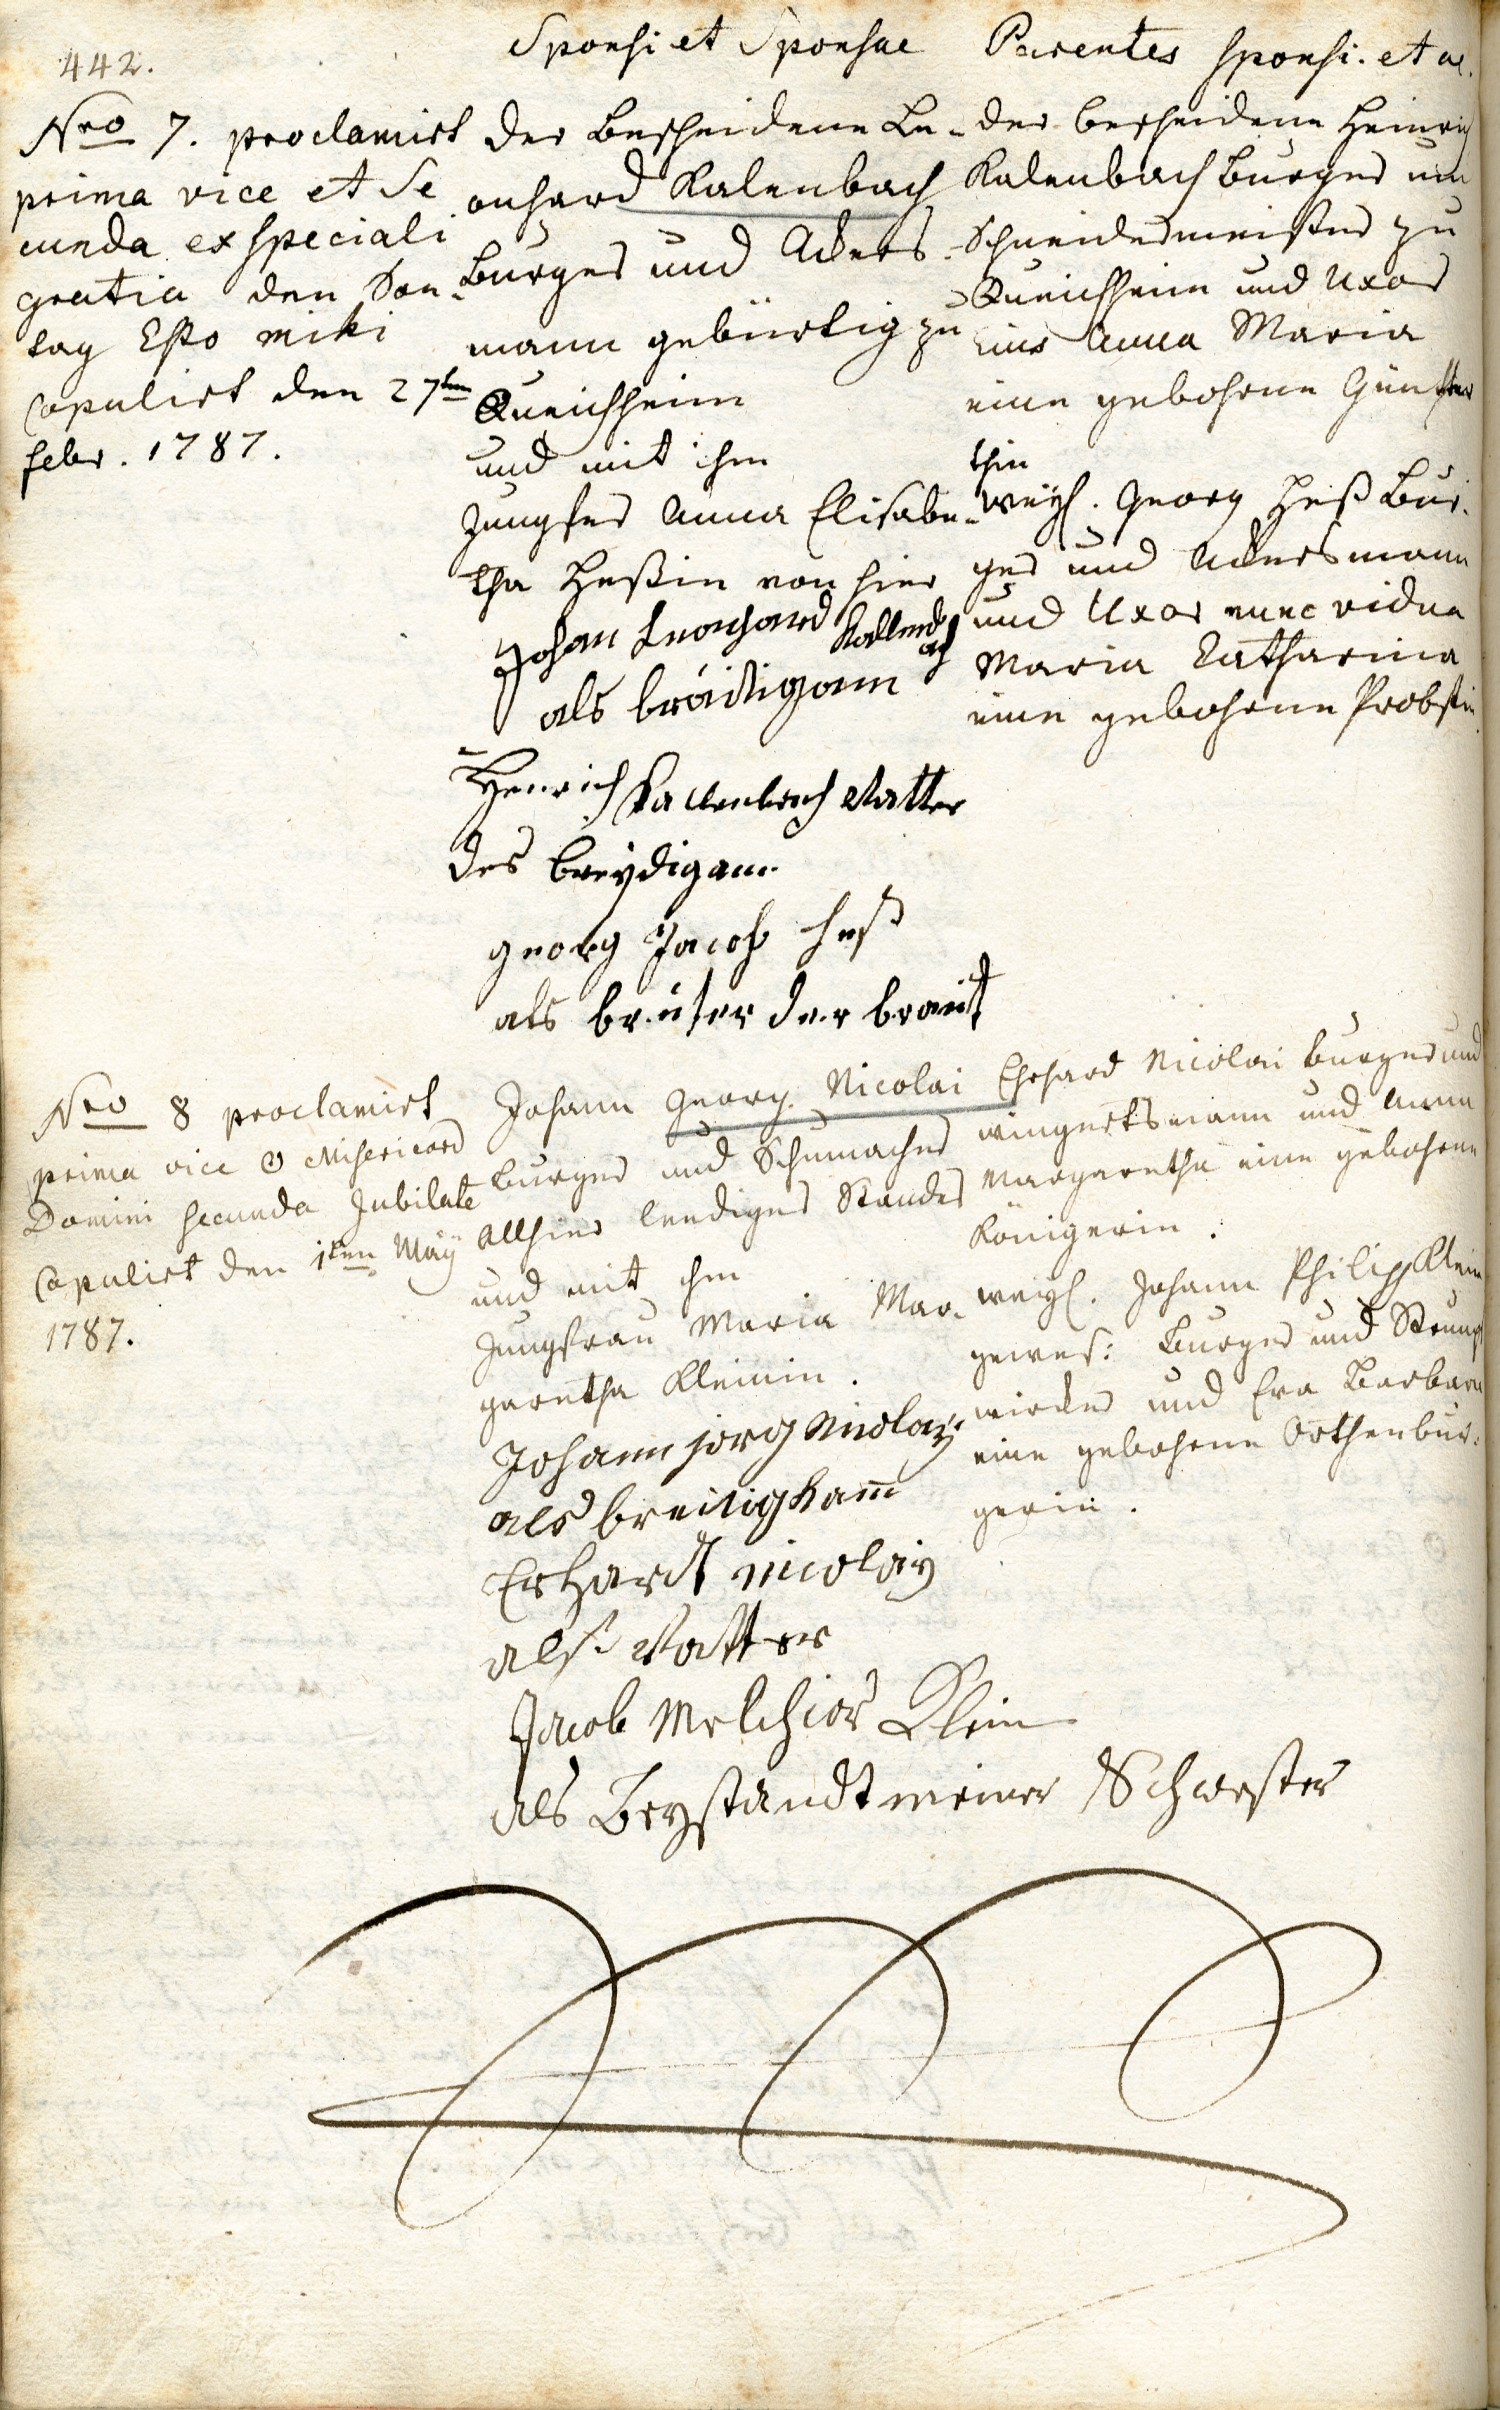 442.
Sponsi et Sponsae
Parentes sponsi. et ae.
Nro 7. proclamirt
prima vice et Se
cunda ex speciali
gratia den Son-
tag Esto mihi
Copulirt den 27ten
febr. 1787.
der bescheidene Le-
onhard Kalenbach
burger und Ackers-
mann gebürtig zu
Queichheim
und mit ihm
Jungfer Anna Elisabe-
tha Heßin von hier
Johan Leonhard Kallenb
ach
als bräitigam
Henrich Kallenbach Vatter
des breydigam
georg Jacob heß
als bruter der braut
der bescheidene Heinrich
Kalenbach burger und
Schneidermeister zu
Queichheim und Uxor
eius Anna Maria
eine gebohrne Günther
thin
weyl. Georg Heß bur-
ger und Ackersmann
und Uxor nunc vidua
Maria Catharina
eine gebohrne Probstin
Nro 8 proclamirt
prima vice Misericord
Domini secunda Jubilate
Copulirt den 1ten May
1787.
Johann Georg Nicolai
burger und Schumacher
allhier leediges Standes
und mit ihm
Jungfrau Maria Mar-
garetha Kleinin.
Johann jorg Nicolay
als breitigkam
Erhardt nicolay
als Vatter
Jacob Melchior Klein
als Beystandt meiner Schwester
Ehrhard Nicolai burger und
wingertsmann und Anna
Margaretha eine gebohrne
Königerin.
weyl. Johann Philipp Klein
gewes: burger und Strumpf
wirker und Eva Barbara
eine gebohrne Orthenbur-
gerin.